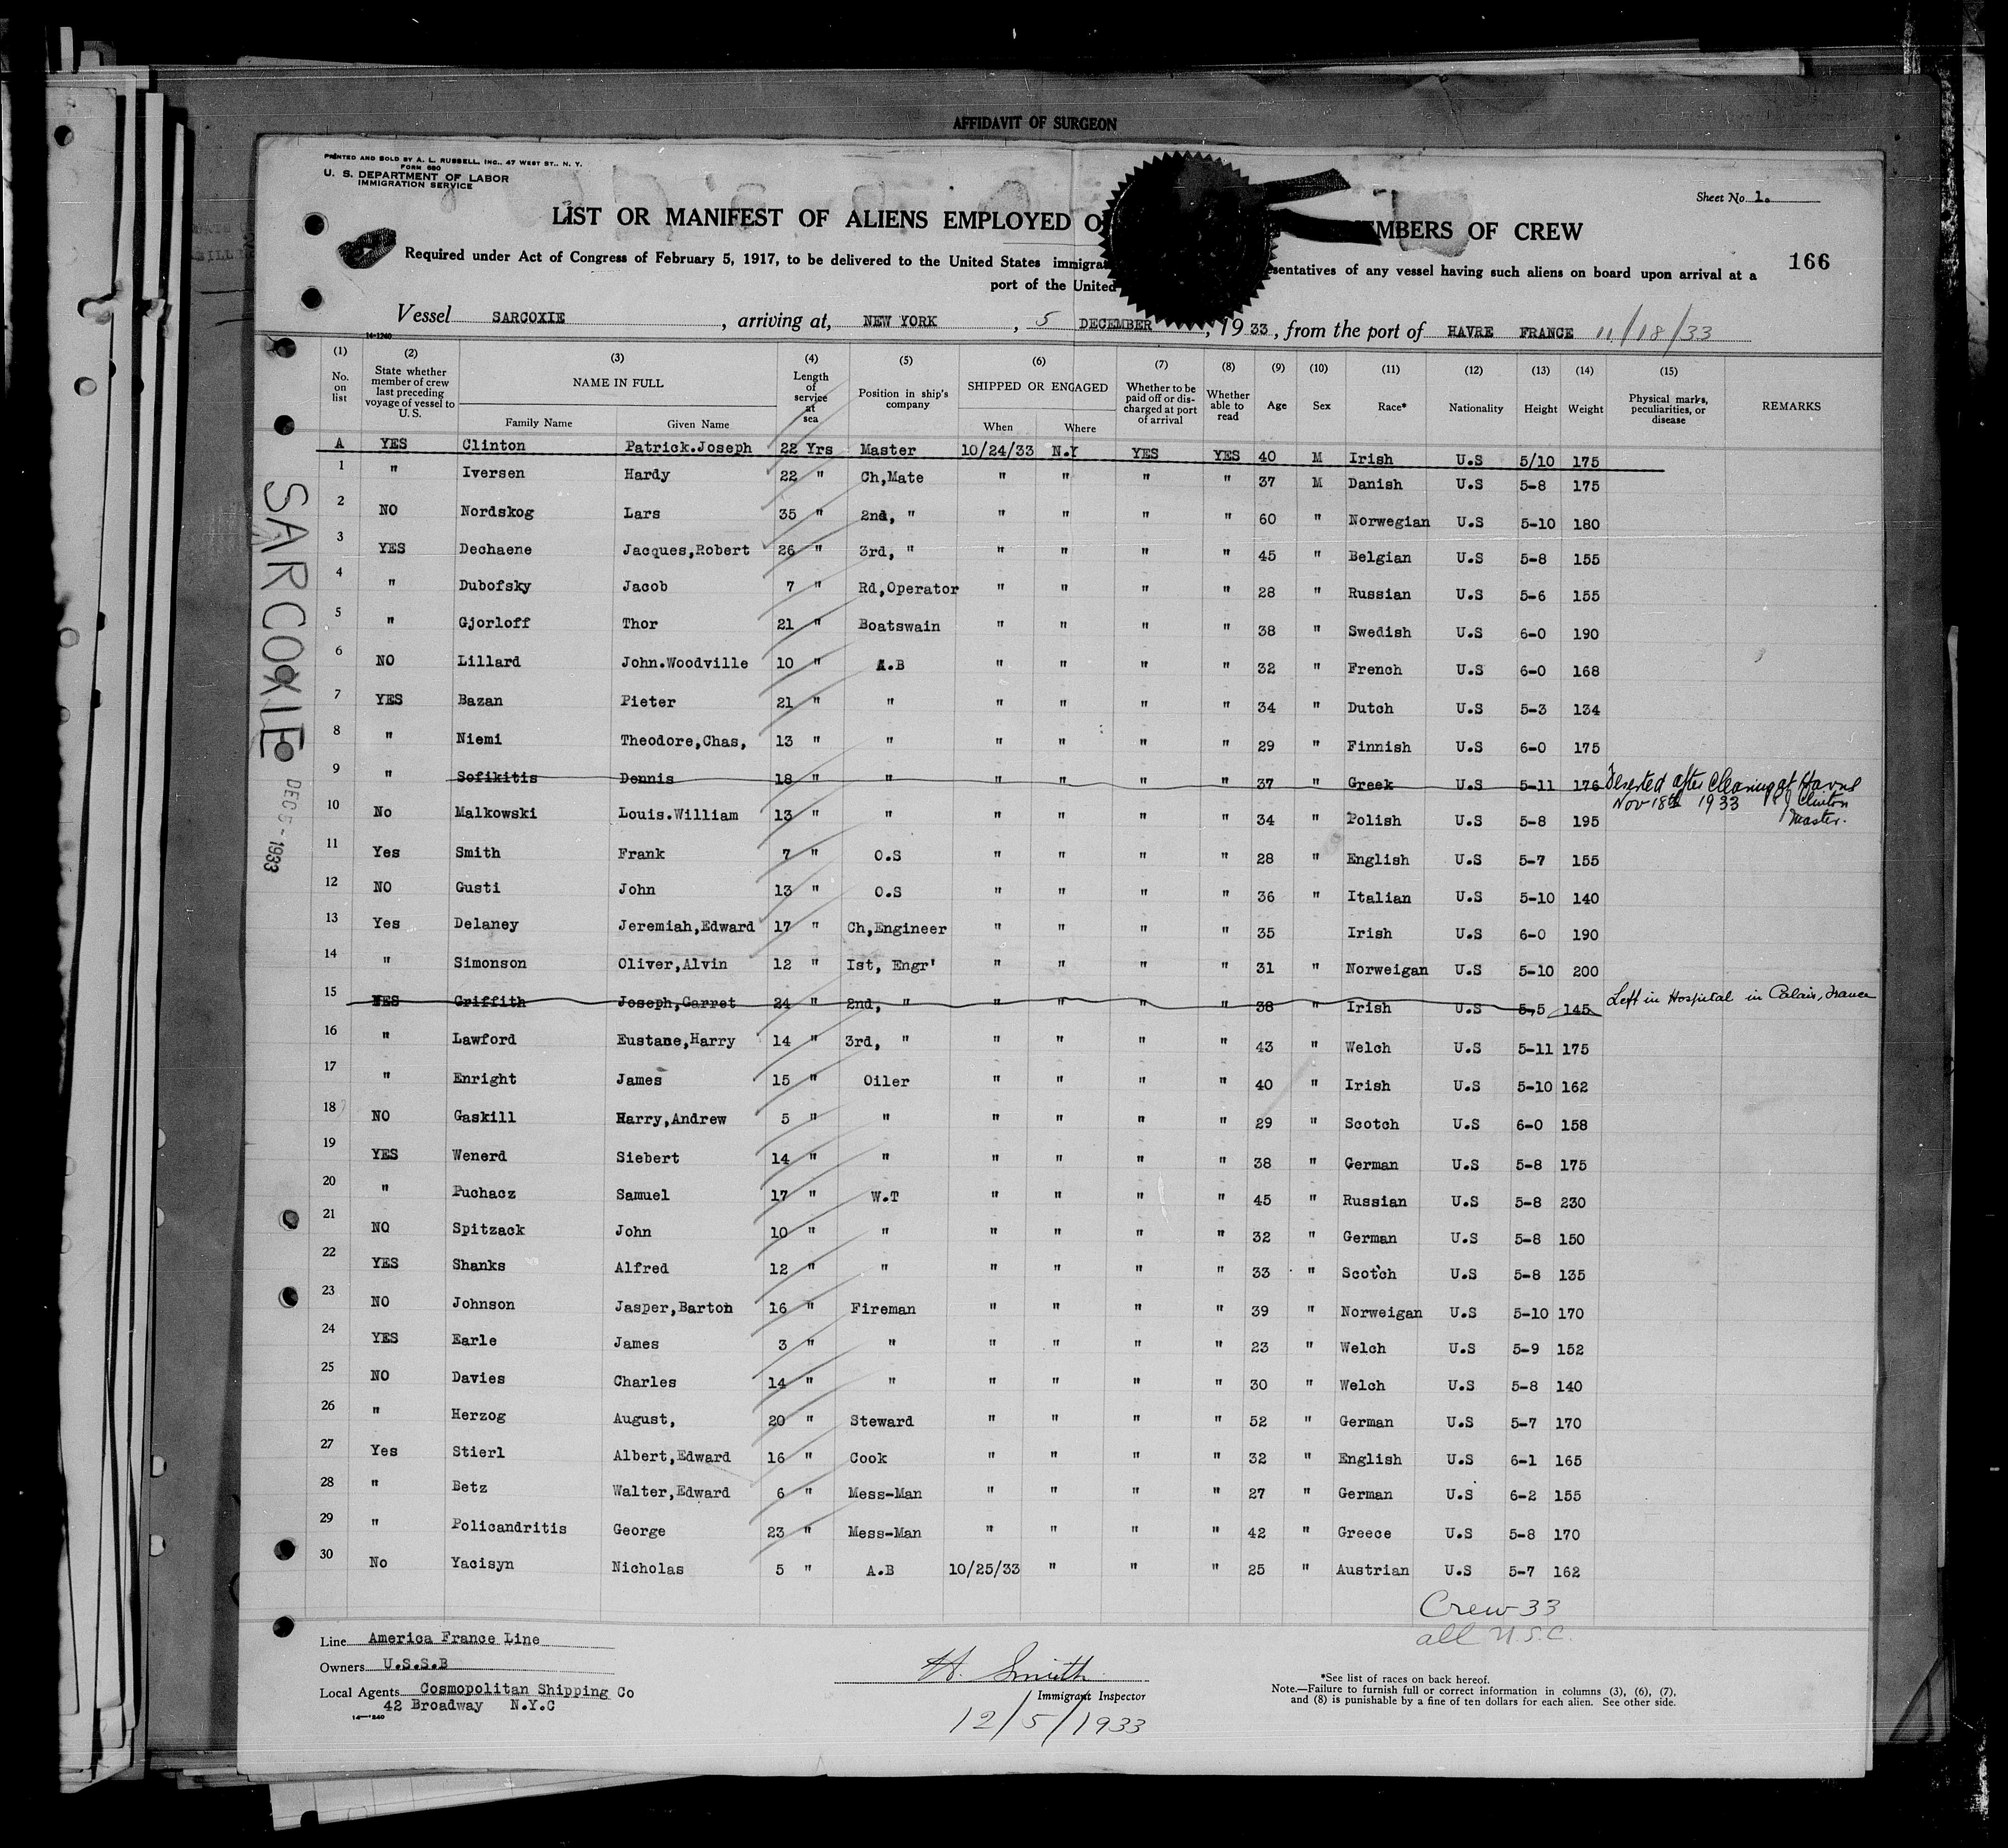 AFFIDAVIT OF SURGEON
PRINTED AND SOLD BY A. L. RUSSELL, INC., 47 WEST ST., N. Y.
FORM 680
U. S. DEPARTMENT OF LABOR
IMMIGRATION SERVICE
Sheet No. 1.
LIST OR MANIFEST OF ALIENS EMPLOYED O MBERS OF CREW
166
Required under Act of Congress of February 5, 1917, to be delivered to the United States immigra esentatives of any vessel having such aliens on board upon arrival at a
port of the United
Vessel SARCOXIE, arriving at, NEW YORK, 5 DECEMBER, 1933, from the port of HAVRE FRANCE 11/18/33
14-1240
(1) (2) (3) (4) (5) (6) (7) (8) (9) (10) (11) (12) (13) (14) (15)
No. on list State whether member of crew last preceding voyage of vessel to U.S. NAME IN FULL Length of service at sea Position in ship's company SHIPPED OR ENGAGED Whether to be paid off or discharged at port of arrival Whether able to read Age Sex Race* Nationality Height Weight Physical marks, peculiarities, or disease REMARKS
Family Name Given Name When Where
A YES Clinton Patrick.Joseph 22 Yrs Master 10/24/33 N.Y YES YES 40 M Irish U.S 5/10 175
1 " Iversen Hardy 22 " Ch,Mate " " " " 37 M Danish U.S 5-8 175
2 NO Nordskog Lars 35 " 2nd, " " " " " 60 " Norwegian U.S 5-10 180
3 YES Dechaene Jacques,Robert 26 " 3rd, " " " " " 45 " Belgian U.S 5-8 155
4 " Dubofsky Jacob 7 " Rd,Operator " " " " 28 " Russian U.S 5-6 155
5 " Gjorloff Thor 21 " Boatswain " " " " 38 " Swedish U.S 6-0 190
6 NO Lillard John.Woodville 10 " A.B " " " " 32 " French U.S 6-0 168
7 YES Bazan Pieter 21 " " " " " " 34 " Dutch U.S 5-3 134
8 " Niemi Theodore,Chas, 13 " " " " " " 29 " Finnish U.S 6-0 175
9 " Sofikitis Dennis 18 " " " " " " 37 " Greek U.S 5-11 176 Deserted after Clearing at Havre
Nov 18th 1933 P J Clinton
Master.
10 No Malkowski Louis.William 13 " " " " " " 34 " Polish U.S 5-8 195
11 Yes Smith Frank 7 " O.S " " " " 28 " English U.S 5-7 155
12 NO Gusti John 13 " O.S " " " " 36 " Italian U.S 5-10 140
13 Yes Delaney Jeremiah,Edward 17 " Ch,Engineer " " " " 35 Irish U.S 6-0 190
14 " Simonson Oliver,Alvin 12 " Ist, Engr' " " " " 31 " Norweigan U.S 5-10 200
15 YES Griffith Joseph,Garret 24 " 2nd, " " " " " 38 " Irish U.S 5-5 145 Left in Hospital in Calais, France
16 " Lawford Eustane,Harry 14 " 3rd, " " " " " 43 " Welch U.S 5-11 175
17 " Enright James 15 " Oiler " " " " 40 " Irish U.S 5-10 162
18 NO Gaskill Harry,Andrew 5 " " " " " " 29 " Scotch U.S 6-0 158
19 YES Wenerd Siebert 14 " " " " " " 38 " German U.S 5-8 175
20 " Puchacz Samuel 17 " W.T " " " " 45 " Russian U.S 5-8 230
21 NO Spitzack John 10 " " " " " " 32 " German U.S 5-8 150
22 YES Shanks Alfred 12 " " " " " " 33 " Scotch U.S 5-8 135
23 NO Johnson Jasper,Barton 16 " Fireman " " " " 39 " Norweigan U.S 5-10 170
24 YES Earle James 3 " " " " " " 23 " Welch U.S 5-9 152
25 NO Davies Charles 14 " " " " " " 30 " Welch U.S 5-8 140
26 " Herzog August, 20 " Steward " " " " 52 " German U.S 5-7 170
27 Yes Stierl Albert,Edward 16 " Cook " " " " 32 " English U.S 6-1 165
28 " Betz Walter,Edward 6 " Mess-Man " " " " 27 " German U.S 6-2 155
29 " Policandritis George 23 " Mess-Man " " " " 42 " Greece U.S 5-8 170
30 No Yacisyn Nicholas 5 " A.B 10/25/33 " " " 25 " Austrian U.S 5-7 162
SARCOXIE
DEC 5 - 1933
Crew 33
all U.S.C.
Line America France Line
Owners U.S.S.B
Local Agents Cosmopolitan Shipping Co
42 Broadway N.Y.C
14-1240
H. Smith
Immigrant Inspector
12/5/1933
*See list of races on back hereof.
Note.—Failure to furnish full or correct information in columns (3), (6), (7),
and (8) is punishable by a fine of ten dollars for each alien. See other side.